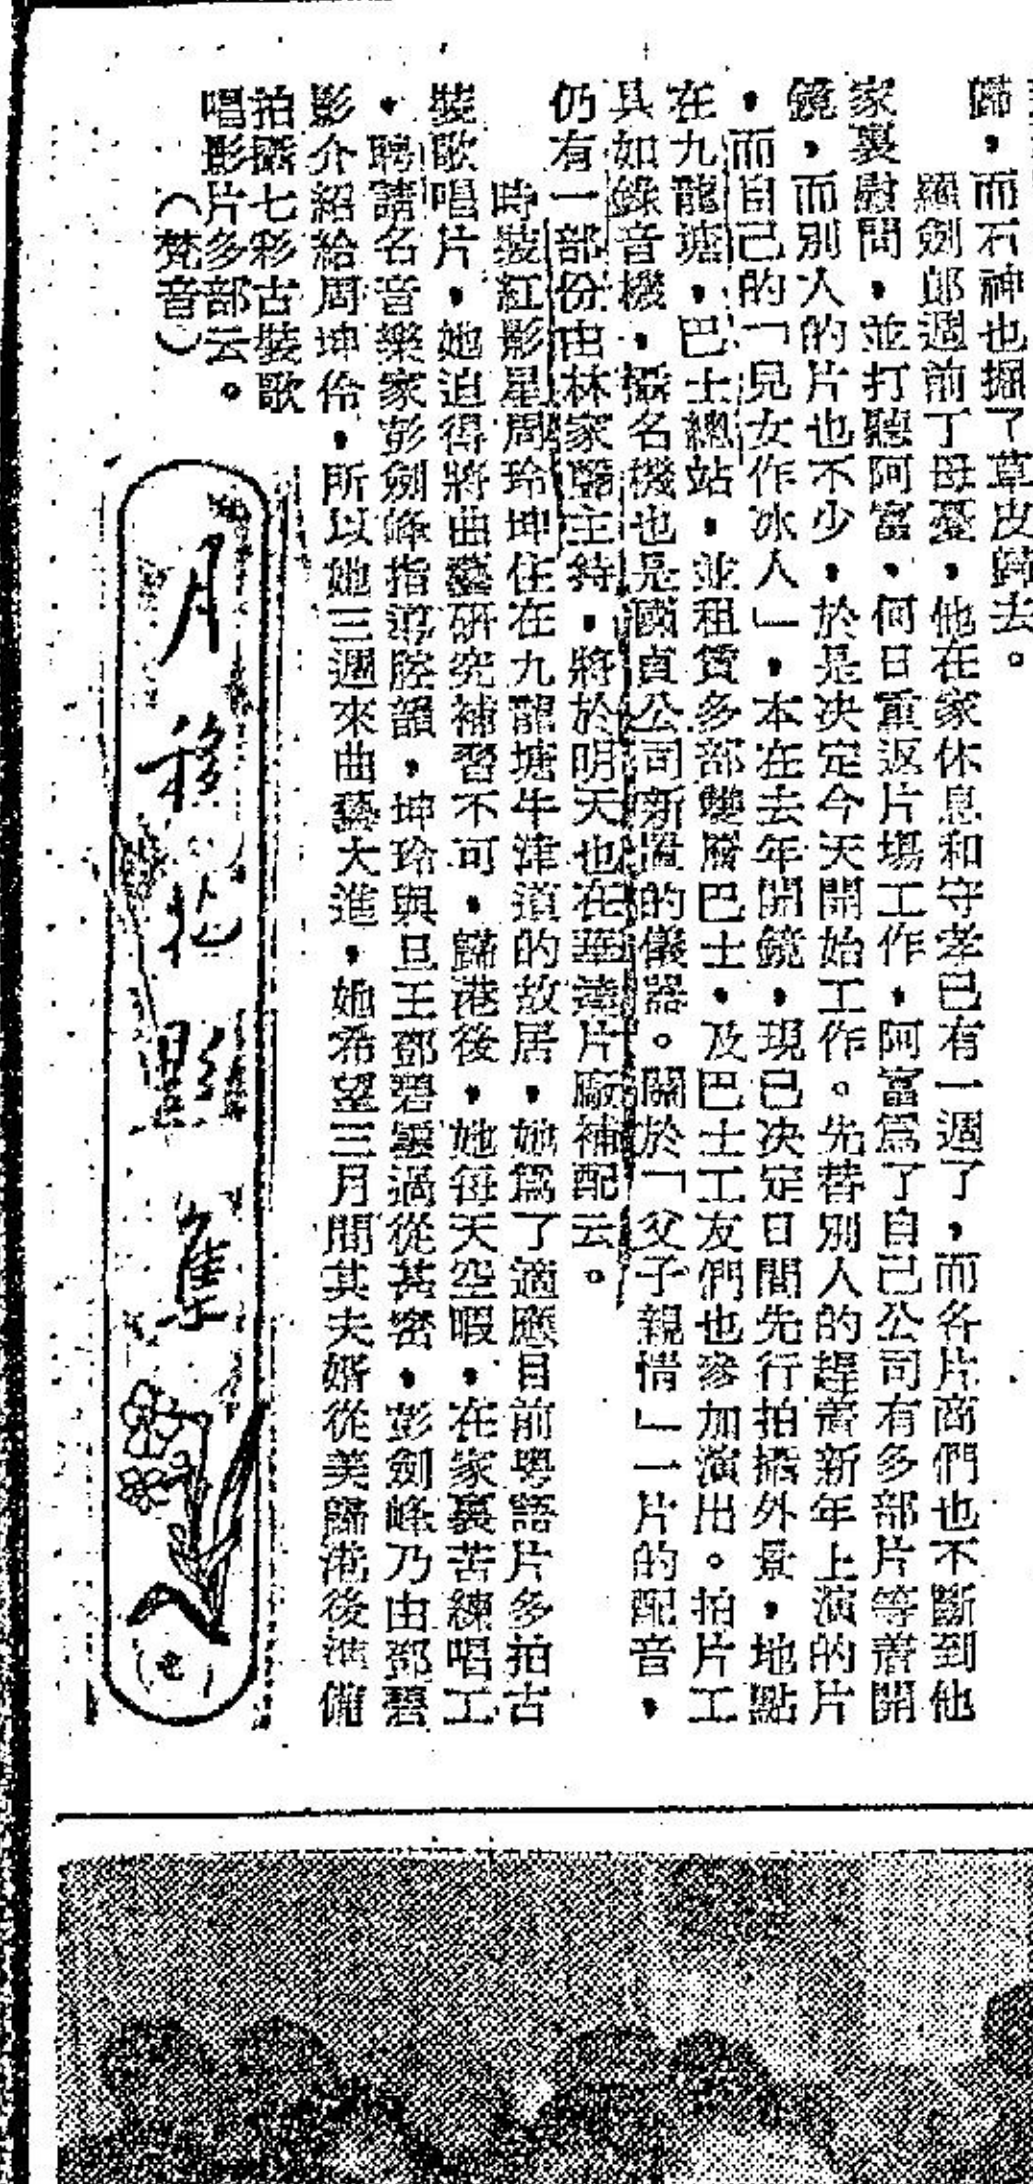 歸，而石神也掘了草皮歸去。
羅劍郎週前丁母憂，他在家休息和守孝已有一週了，而各片商們也不斷到他
家裏慰問，並打聽阿富，何日重返片場工作，阿富爲了自己公司有多部片等着開
鏡，而別人的片也不少，於是决定今天開始工作。先替別人的趕着新年上演的片
，而自己的「兒女作冰人」，本在去年開鏡，現已决定日間先行拍攝外景，地點
在九龍塘，巴士總站，並租賃多部雙層巴士，及巴士工友們也參加演出。拍片工
具如錄音機，攝名機也是國貞公司新置的儀器。關於「父子親情」一片的配音，
仍有一部份由林家聲主持，將於明天也在華達片廠補配云。
時裝紅影星周玲坤住在九龍塘牛津道的故居，她爲了適應目前粵語片多拍古
裝歌唱片，她迫得將曲藝研究補習不可，歸港後，她每天空暇，在家裏苦練唱工
，聘請名音樂家彭劍峰指導腔韻，坤玲與旦王鄧碧雲過從甚密，彭劍峰乃由鄧碧
影介紹給周坤伶，所以她三週來曲藝大進，她希望三月間其夫婿從美歸港後準備
拍攝七彩古裝歌
唱影片多部云。
（梵音）
月移花影集